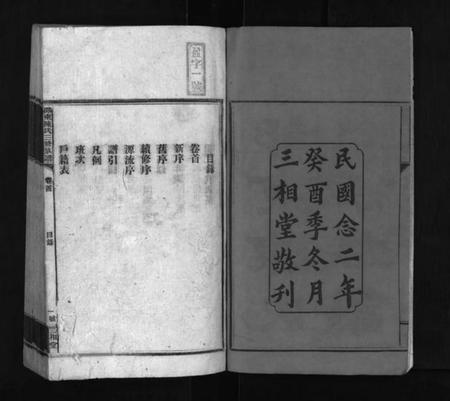 民國念二年
癸酉季冬月
三相堂敬刊
字一號
目錄
卷首
新序
舊序
續修序
源流序
譜引
凡例
班次
戶籍表
卷首
目錄